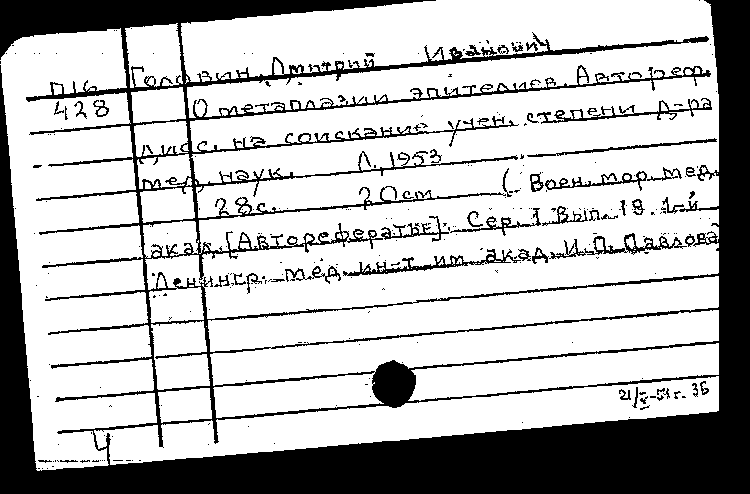 П16 Головин, Дмитрий Иванович
428 О метаплазии эпителиев. Автореф.
дисс. на соискание учен. степени д-ра
мед. наук. Л., 1953
28с. 20см (Воен. мор. мед.
акад. [Авторефераты]. Сер. 1 Вып. 18. 1-й
Ленингр. мед. ин-т им. акад. И. П. Павлова
21/V-54г. 35
4